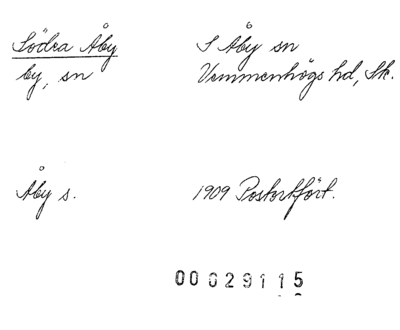 Södra Åby
S Åby sn
by, sn
Vemmenhögs hd, Sk.
Åby s.
1909 Postortfört.
00029115